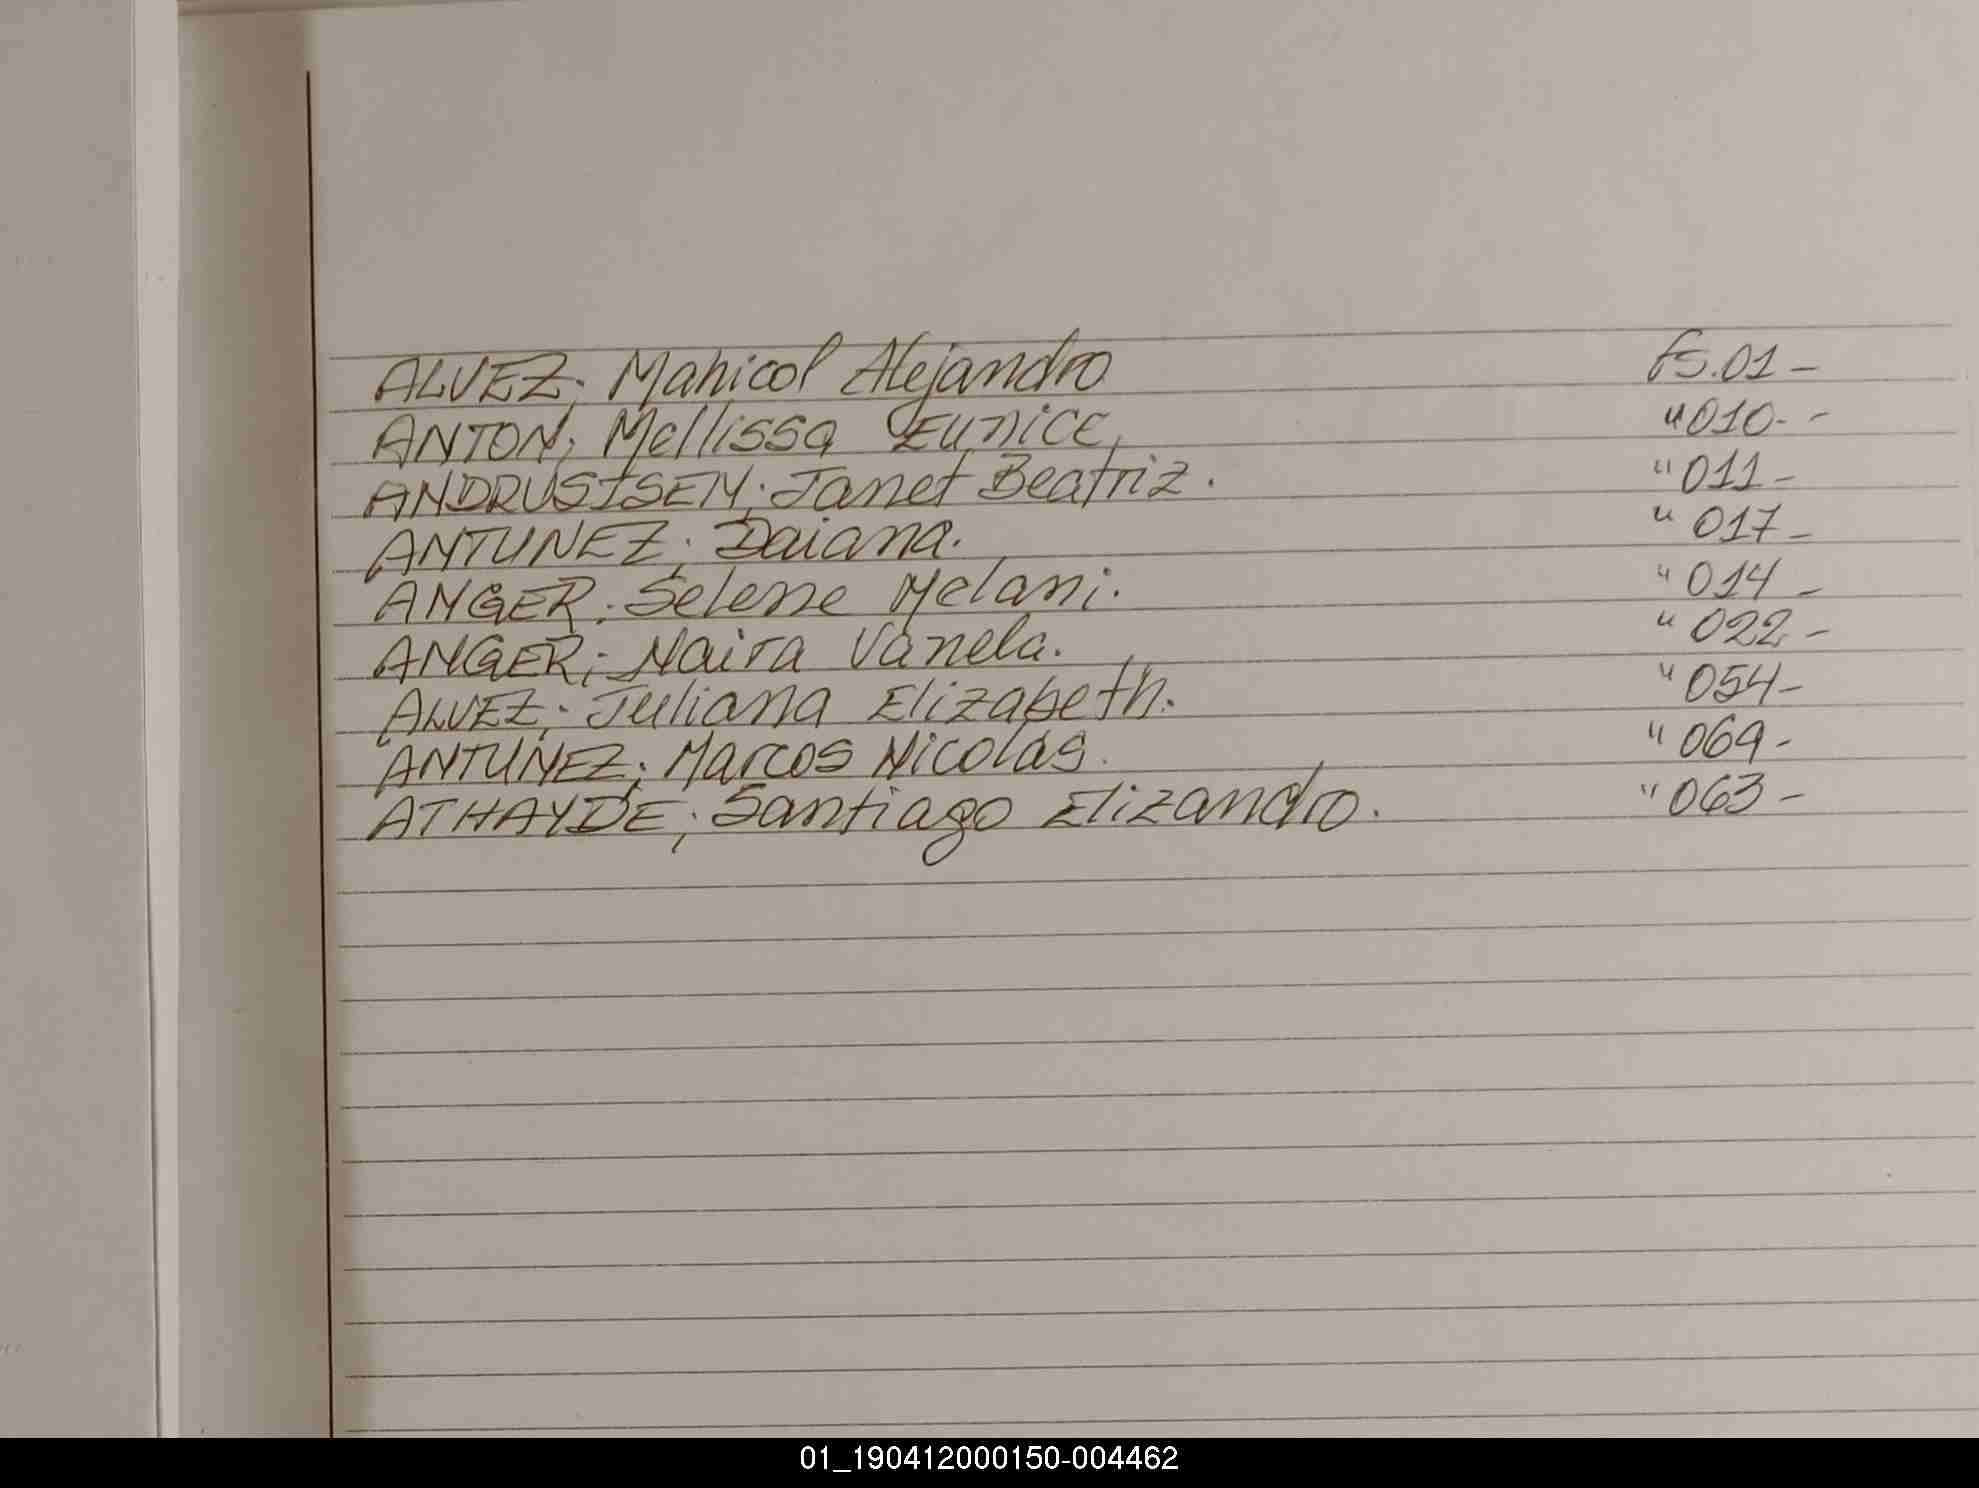 ALVEZ; Mahicol Alejandro fs.01-
ANTON; Mellissa Eunice, "010--
ANDRUSISEN; Janet Beatriz. "011-
ANTUNEZ; Daiana. "017-
ANGER; Selene Melani. "014-
ANGER; Naira Vanela. "022-
ALVEZ; Juliana Elizabeth. "054-
ANTUNEZ; Marcos Nicolás. "069-
ATHAYDE; Santiago Elizandro. "063-
01_190412000150-004462